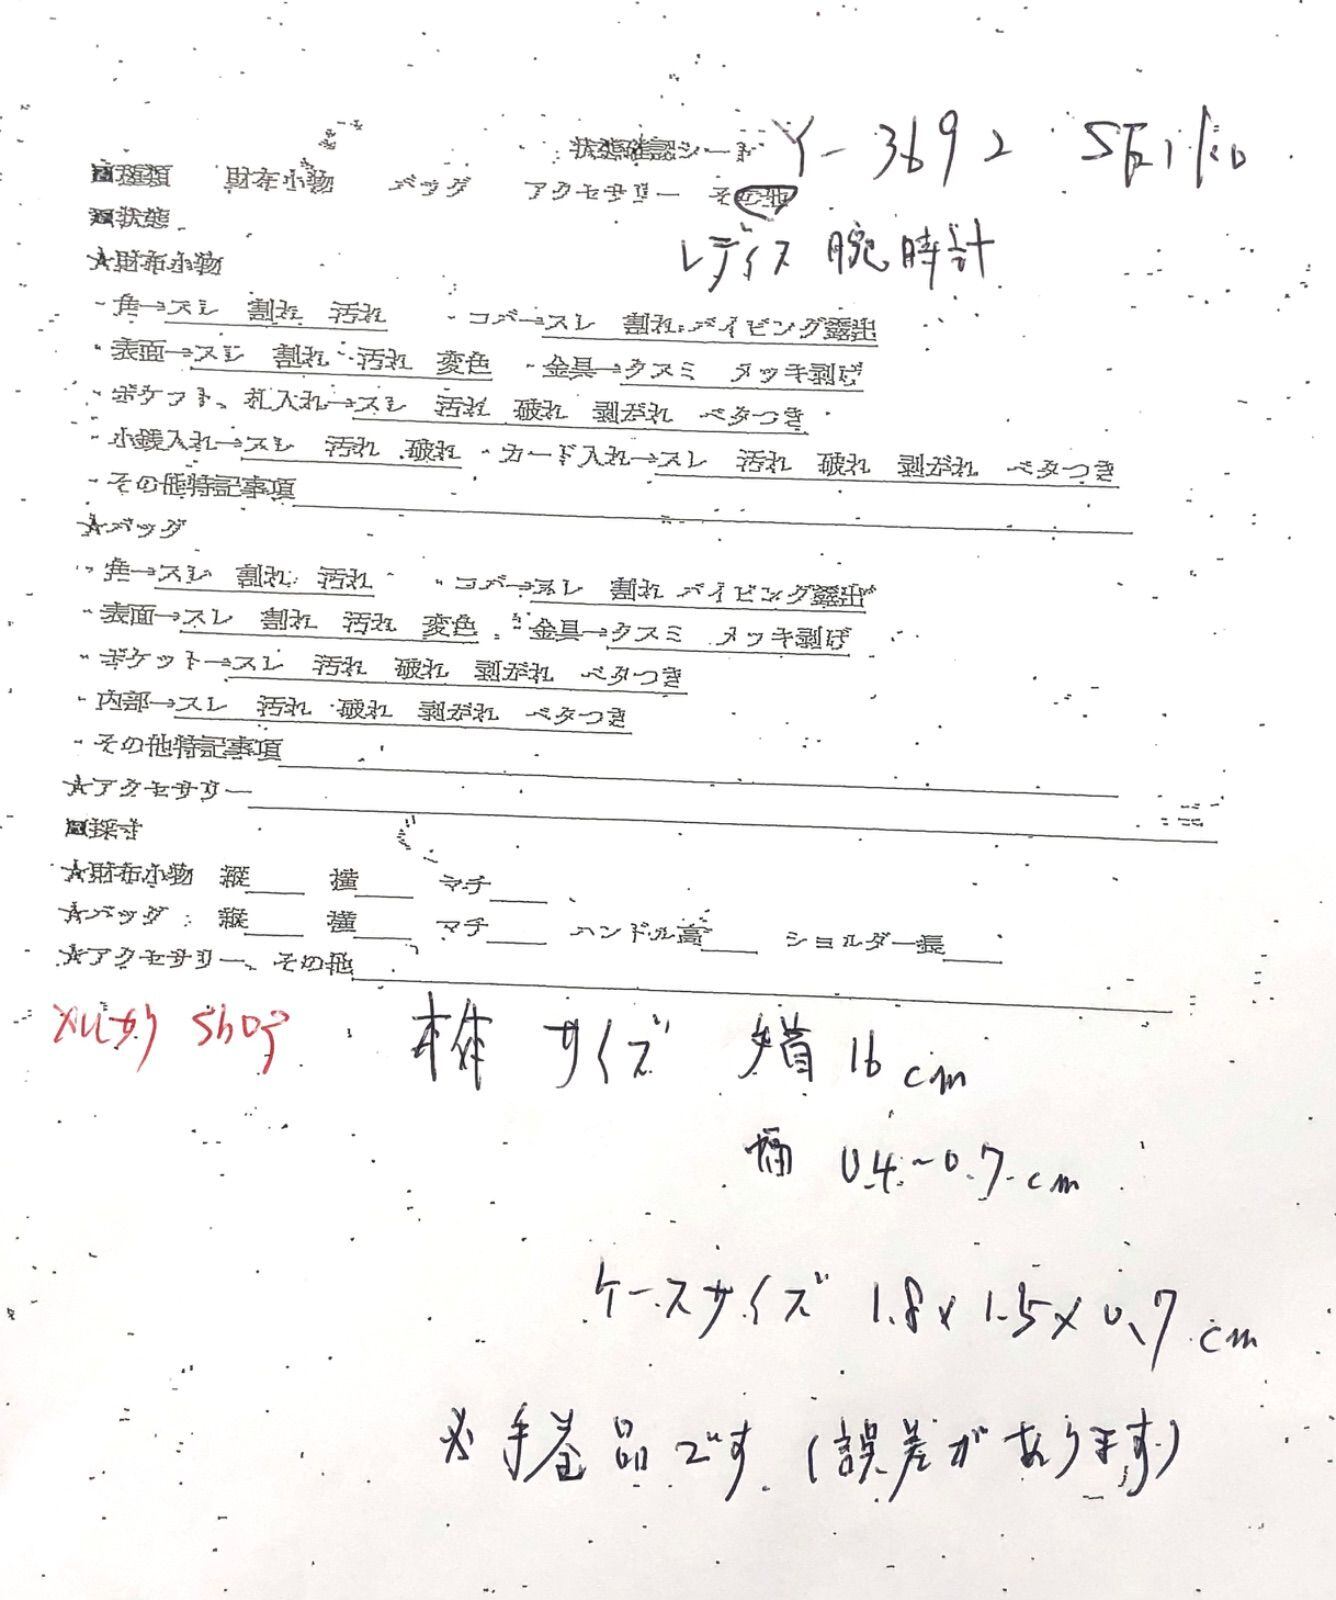 状態確認シート Y-3692 SEIKO
■種類 財布小物 バッグ アクセサリー その他
レディス 腕時計
■状態
★財布小物
・角→スレ 割れ 汚れ ・コバ→スレ 割れ パイピング露出
・表面→スレ 割れ 汚れ 変色 ・金具→クスミ メッキ剥げ
・ポケット、札入れ→スレ 汚れ 破れ 剥がれ ベタつき
・小銭入れ→スレ 汚れ 破れ ・カード入れ→スレ 汚れ 破れ 剥がれ ベタつき
・その他特記事項
★バッグ
・角→スレ 割れ 汚れ ・コバ→スレ 割れ パイピング露出
・表面→スレ 割れ 汚れ 変色 ・金具→クスミ メッキ剥げ
・ポケット→スレ 汚れ 破れ 剥がれ ベタつき
・内部→スレ 汚れ 破れ 剥がれ ベタつき
・その他特記事項
★アクセサリー
■採寸
★財布小物 縦 横 マチ
★バッグ 縦 横 マチ ハンドル高 ショルダー長
★アクセサリー、その他
shop 本体 サイズ 手首 16 cm
幅 0.4~0.7 cm
ケースサイズ 1.8×1.5×0.7 cm
※手巻品です (誤差があります)